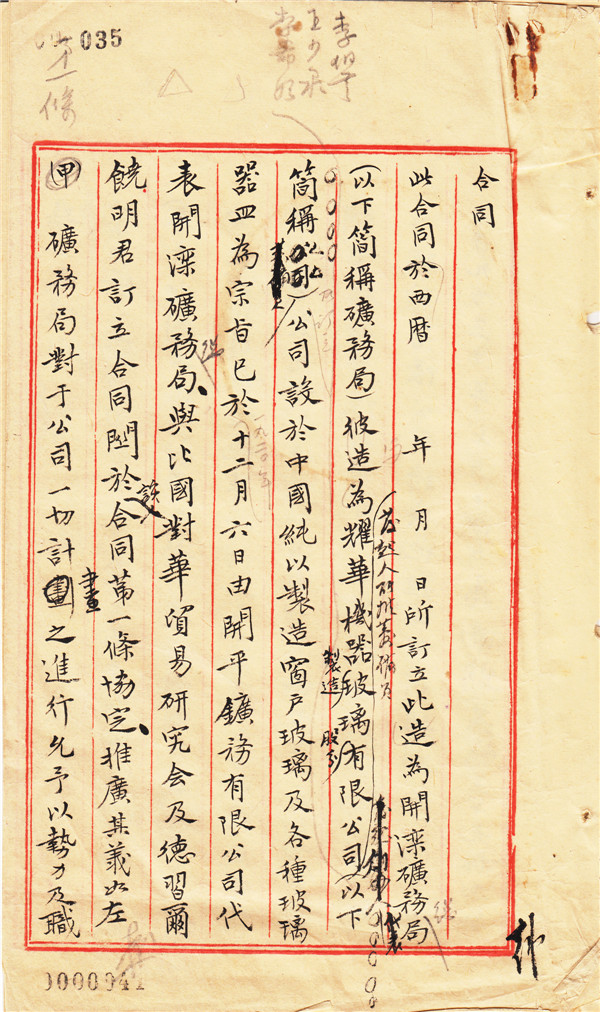 035
第一條
合同
此合同於西曆 年 月 日所訂立此造為開灤礦務局
(以下簡稱礦務局)彼造為耀華機器玻璃有限公司以下
製造 股分
簡稱 公司設於中國純以製造窗戶玻璃及各種玻璃
器皿為宗旨已於十二月六日由開平鑛務有限公司代
一九二〇年
表開灤礦務總局、與比國對華貿易研究会及德習爾
饒明君訂立合同関於該合同第一條協定、推廣其義如左
甲 礦務局對于公司一切計畫之進行允予以勢力及職
0000041